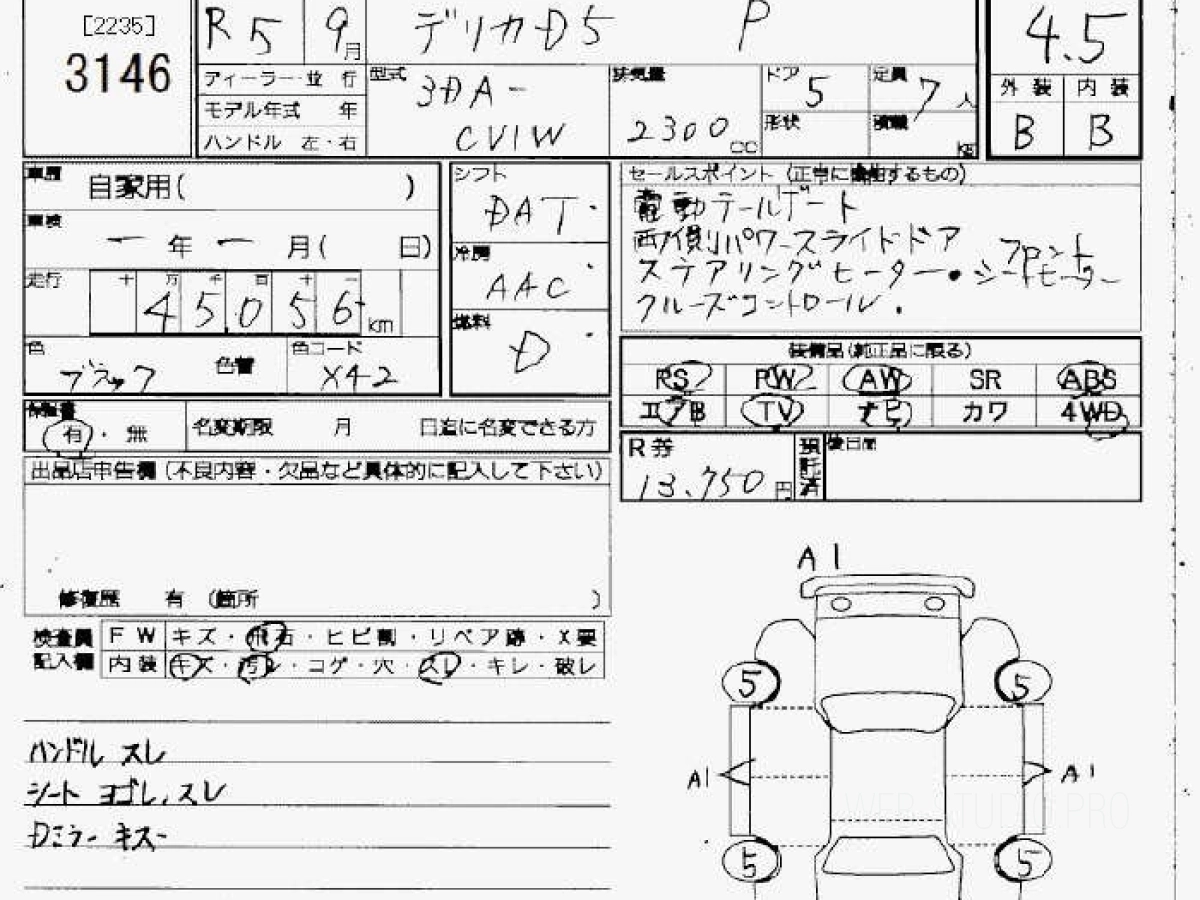 [2235]
3146
R5 9月
デリカD5 P
4.5
ディーラー・並 行
モデル年式 年
ハンドル 左・右
型式
3DA-
CV1W
排気量
2300 cc
ドア
5
定員
7 人
形状
積載
kg
外 装 内 装
B B
車歴
自家用( )
車検
ー 年 ー 月( 日)
走行
十 万 千 百 十 一
45.056 km
色
ブラック
色替
色コード
X42
シフト
DAT
冷房
AAC
燃料
D
セールスポイント (正常に機能するもの)
電動テールゲート
両側パワースライドドア
ステアリングヒーター・フロントシートヒーター
クルーズコントロール.
装備品(純正品に限る)
PS PW AW SR ABS
エアB TV ナビ カワ 4WD
保証書
有 ・ 無
名変期限 月 日迄に名変できる方
R券
13.750 円
預託済
後日部
出品店申告欄(不良内容・欠品など具体的に記入して下さい)
修復歴 有 (箇所 )
検査員記入欄
FW キズ・飛石・ヒビ割・リペア跡・X要
内装 キズ・汚レ・コゲ・穴・スレ・キレ・破レ
ハンドル スレ
シート ヨゴレ.スレ
Dミラー キズ
A1
5 5
A1 A1
5 5
WEB STUDIO PRO